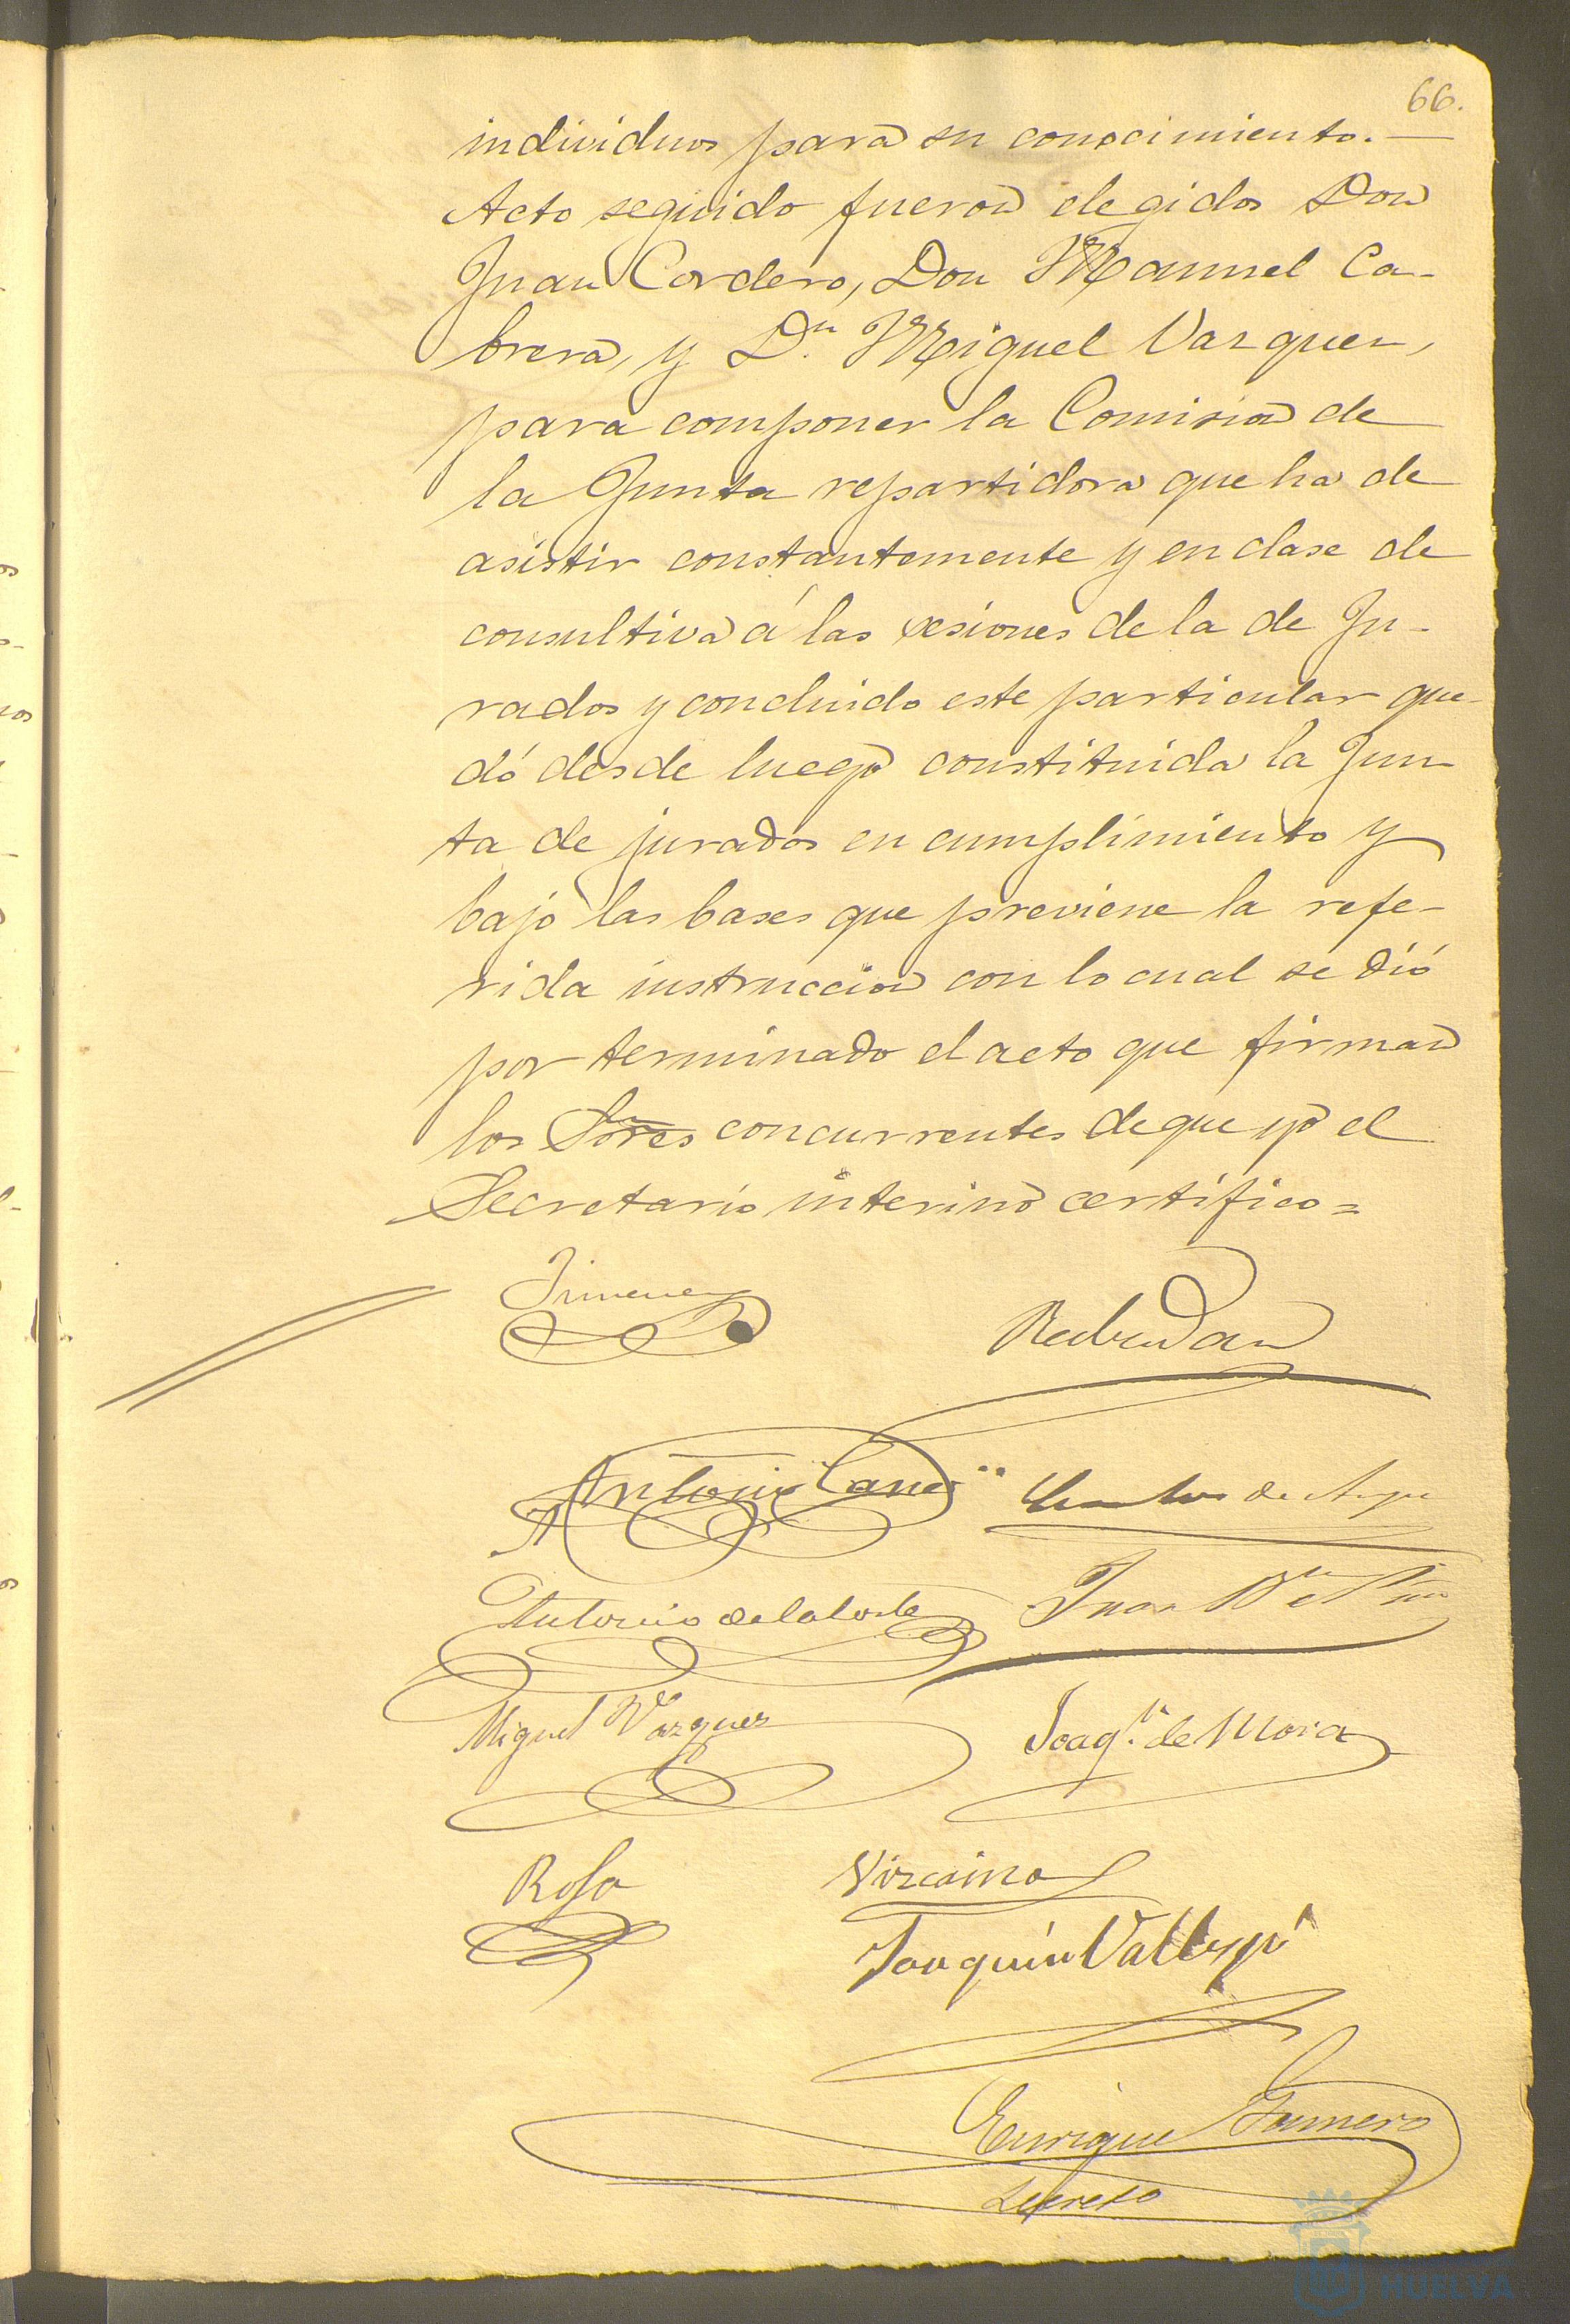 66.
individuos para su conocimiento. —
Acto seguido fueron elegidos Don
Juan Cordero, Don Manuel Ca-
brera, y Dn. Miguel Vazquez,
para componer la Comision de
la Junta repartidora que ha de
asistir constantemente y en clase de
consultiva á las sesiones de la de Ju-
rados y concluido este particular que-
dó desde luego constituida la Jun
ta de jurados en cumplimiento y
bajo las bases que previene la refe-
rida instruccion con lo cual se dió
por terminado el acto que firman
los Sores concurrentes de que yo el
Secretario interino certifico =
Jimenez
Antonio de la Corte
Juan
Miguel Vazquez
Joaqn. de Mora
Rofa
Vizcaino
Joaquin
Enrique
Secreto
HUELVA